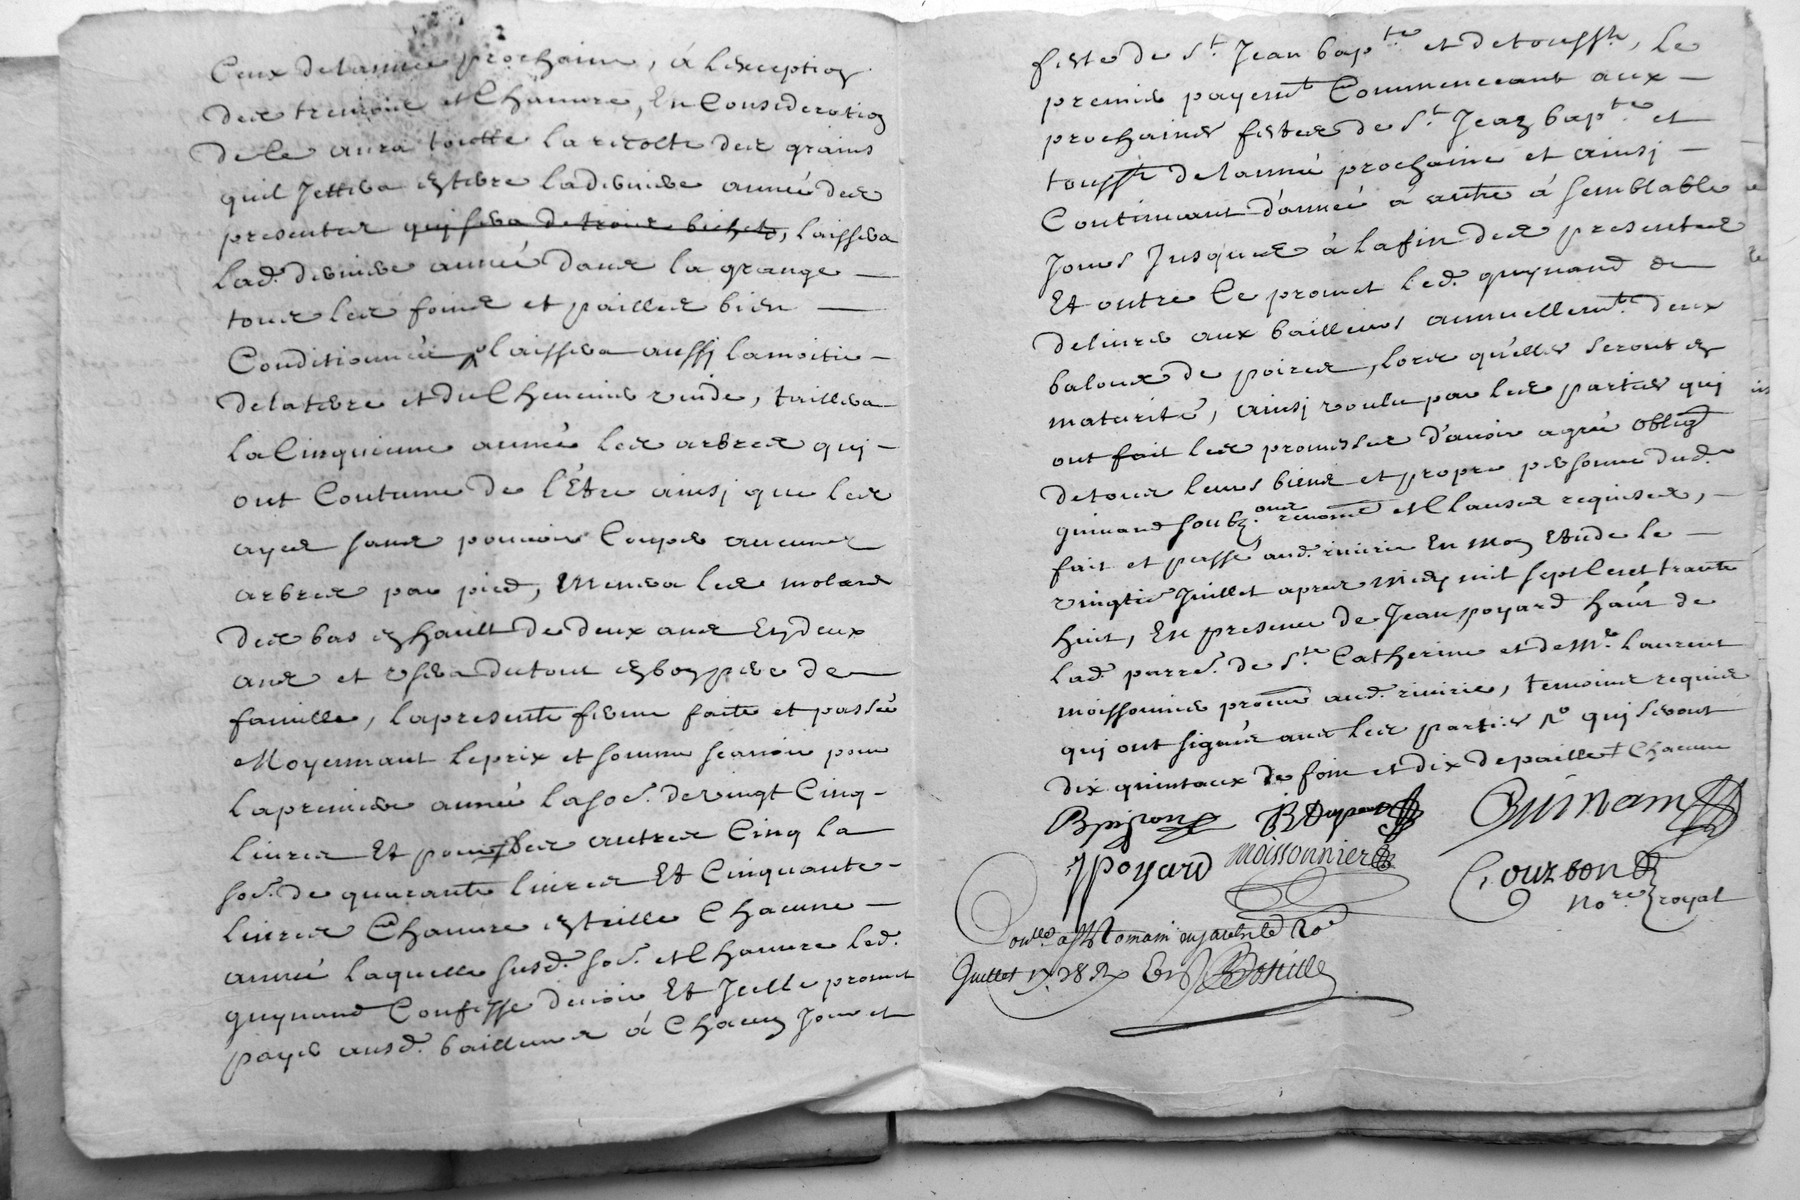 Ceux de lannée prochaine, á lexception
des tremois et Chanvre, En Consideration
de ce aura toutte la recolte des grains
quil Jettera en terre laderniere année des
presentes qui sera de trois bichets, laissera
lad. derniere année dans la grange
tous les foins et pailles bien
Conditionnés laissera aussj lamoitié
delaterre et du Chenevier vuide, taillera
la Cinquieme année les arbres quj
ont Coutume de l'Etre ainsj que les
ayes sans pouvoir Couper aucuns
arbres par pied, Menera les molans
des bas en hault de deux ans En deux
ans et usera dutout en bon pere de
famille, lapresente ferme faite et passée
Moyennant leprix et somme scavoir pour
lapremiere année la so.e de vingt Cinq
livres Et pour les autres Cinq la
so.e de quarante livres Et Cinquante
livres Chanvre en teille Chacune
année laquelle susd. so.e et Chanvre led.
guynand Confesse devoir Et Jcelle promet
payer ausd. bailleurs á Chacun Jour et
feste de St Jean bapte et detoussts, le
premier payemt Commencant aux
prochaines festes de St Jean bapte et
toussts delannée prochaine et ainsj
Continuant d'année á autre á semblable
Jours Jusques á lafin des presentes
Et outre Ce promet led. guynand de
delivrer aux bailleurs annuellemt deux
de poires, lors qu'elles seront en
maturité, ainsj voulu par les parties quj
ont fait les promesses d'avoir agrée oblign
detous leurs biens et propre personne dud.
guinand soubz.ons renome et Clauses requises,
fait et passé aud. riverie En Mon Etude le
vingtie Juillet apres Midy mil sept Cent trante
huit, En presence de Jean poyard hañt de
lad. parre. de Ste Catherine et de Mre laurent
moissonnier procue aud. riverie, temoins requis
quj ont signés avec les parties qui seront
dix quintaux de foin et dix depaille Chacune
Guinam
JPoyard moissonnier
Courbon
nore royal
Conllé a St Romain en jarest le 20e
Juillet 1738